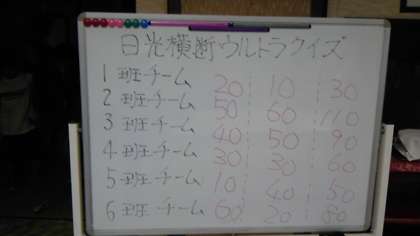 日光横断ウルトラクイズ
1班チーム 20 10 30
2班チーム 50 60 110
3班チーム 40 50 90
4班チーム 30 30 60
5班チーム 10 40 50
6班チーム 60 20 80